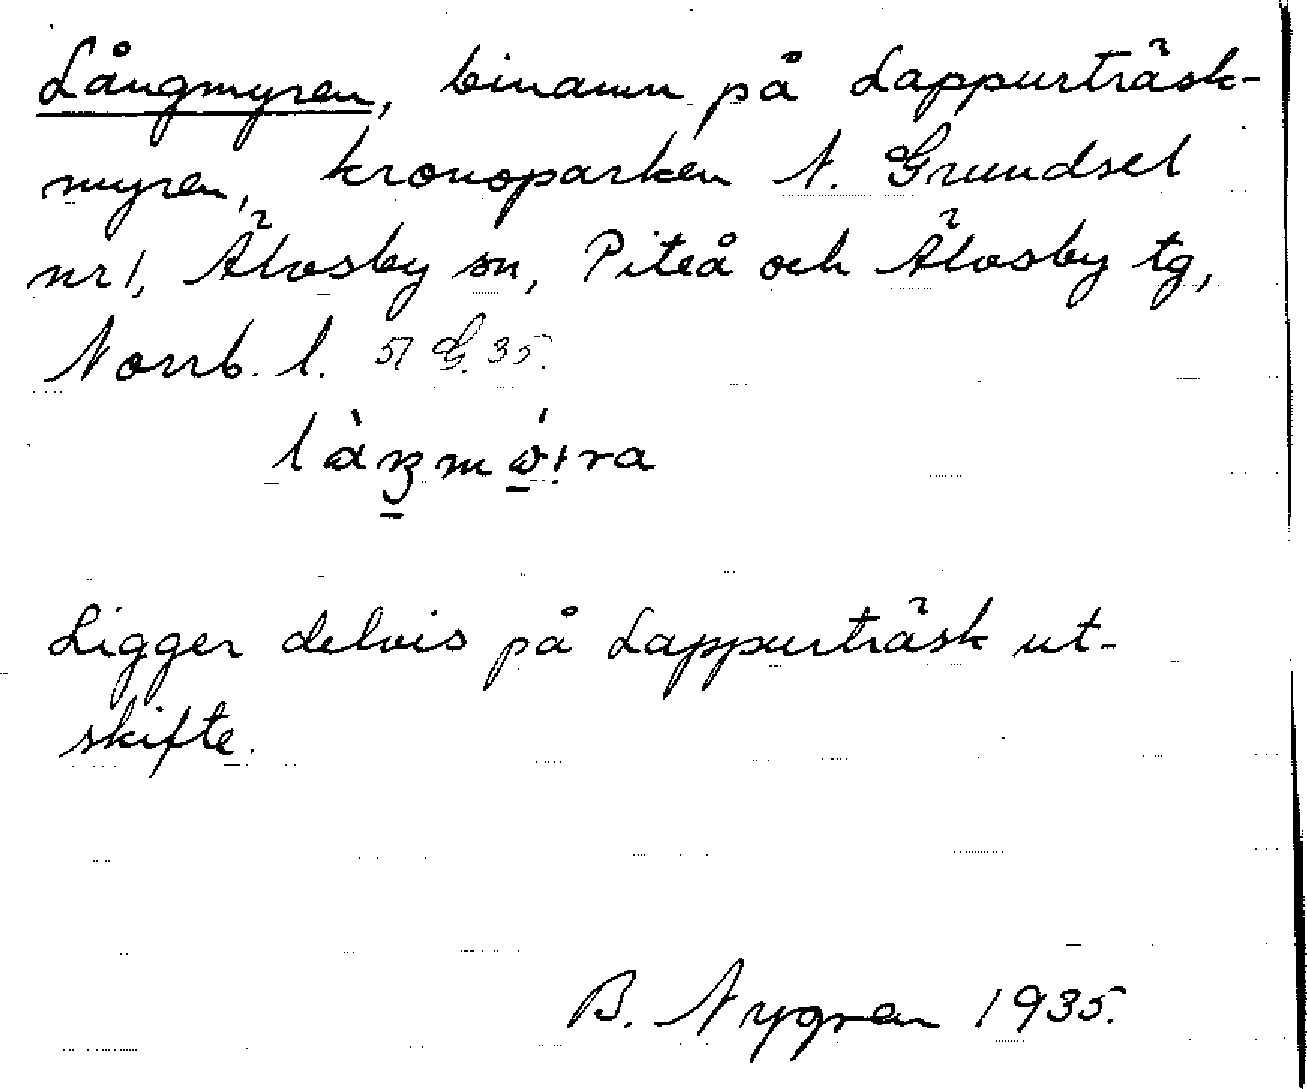 Långmyren, binamn på Lappurträsk-
myren, kronoparken N. Grundsel
nr 1, Älvsby sn, Piteå och Älvsby tg,
Norrb. l. 51 G. 35.
Ligger delvis på Lappurträsk ut-
skifte.
B. Nygren 1935.